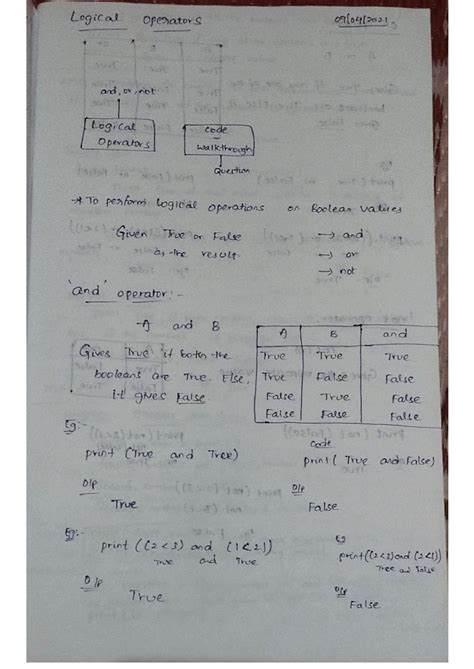 Logical Operators 09/04/2021,
and, or, not
Logical Operators
code walkthrough
Question
-* To perform Logical operations on Boolean values
Given True or False → and
as the result. → or
→ not
'and' operator:-
-A and B
Gives True if both the
booleans are True. Else,
it gives False.
A B and
True True True
True False False
False True False
False False False
Eg:-
code
print (True and True) print ( True and False)
O/P O/P
True False
Eg:- Eg
print ((2<3) and (1<2)) print((2<3) and (2<1))
True and True True and False
O/P O/P
True False